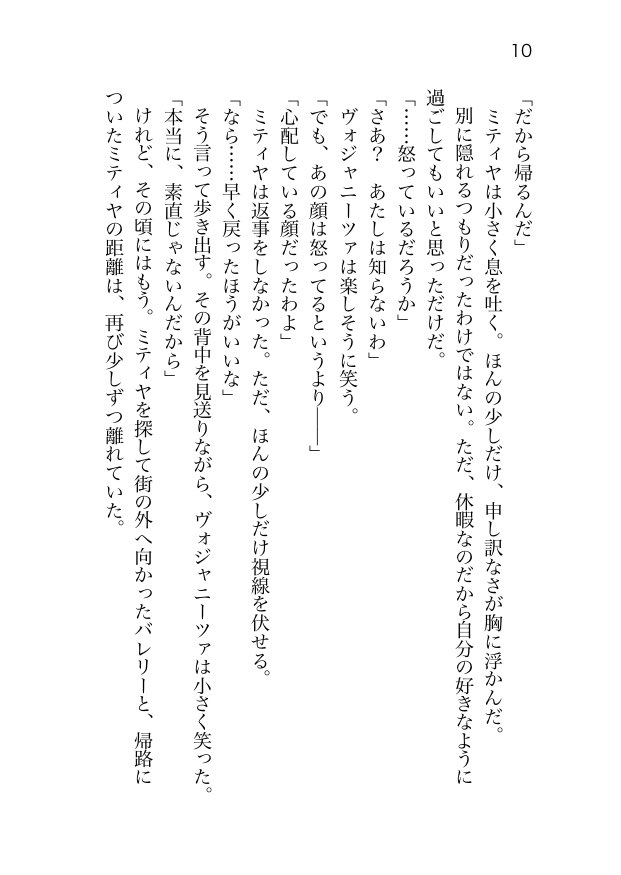 10
「だから帰るんだ」
　ミティヤは小さく息を吐く。ほんの少しだけ、申し訳なさが胸に浮かんだ。
　別に隠れるつもりだったわけではない。ただ、休暇なのだから自分の好きなように
過ごしてもいいと思っただけだ。
「……怒っているだろうか」
「さあ？　あたしは知らないわ」
　ヴォジャニーツァは楽しそうに笑う。
「でも、あの顔は怒ってるというより――」
「心配している顔だったわよ」
　ミティヤは返事をしなかった。ただ、ほんの少しだけ視線を伏せる。
「なら……早く戻ったほうがいいな」
　そう言って歩き出す。その背中を見送りながら、ヴォジャニーツァは小さく笑った。
「本当に、素直じゃないんだから」
　けれど、その頃にはもう。ミティヤを探して街の外へ向かったバレリーと、帰路に
ついたミティヤの距離は、再び少しずつ離れていた。